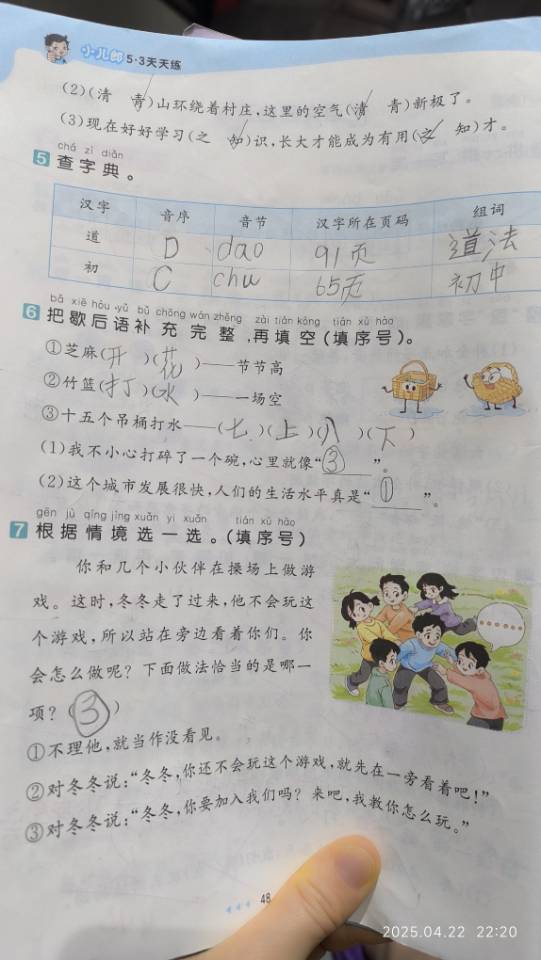 小儿郎 5·3天天练
(2)(清 青)山环绕着村庄,这里的空气(清 青)新极了。
(3)现在好好学习(之 知)识,长大才能成为有用(之 知)才。
chá zì diǎn
5 查字典。
汉字 音序 音节 汉字所在页码 组词
道 D dao 91页 道法
初 C chu 65页 初中
bǎ xiē hòu yǔ bǔ chōng wán zhěng zài tián kòng tián xù hào
6 把歇后语补充完整,再填空(填序号)。
①芝麻(开)(花)——节节高
②竹篮(打)(水)——一场空
③十五个吊桶打水——(七)(上)(八)(下)
(1)我不小心打碎了一个碗,心里就像“③”。
(2)这个城市发展很快,人们的生活水平真是“①”。
gēn jù qíng jìng xuǎn yi xuǎn tián xù hào
7 根据情境选一选。(填序号)
你和几个小伙伴在操场上做游
戏。这时,冬冬走了过来,他不会玩这
个游戏,所以站在旁边看着你们。你
会怎么做呢?下面做法恰当的是哪一
项?(③)
①不理他,就当作没看见。
②对冬冬说:“冬冬,你还不会玩这个游戏,就先在一旁看着吧!”
③对冬冬说:“冬冬,你要加入我们吗?来吧,我教你怎么玩。”
48
2025.04.22 22:20